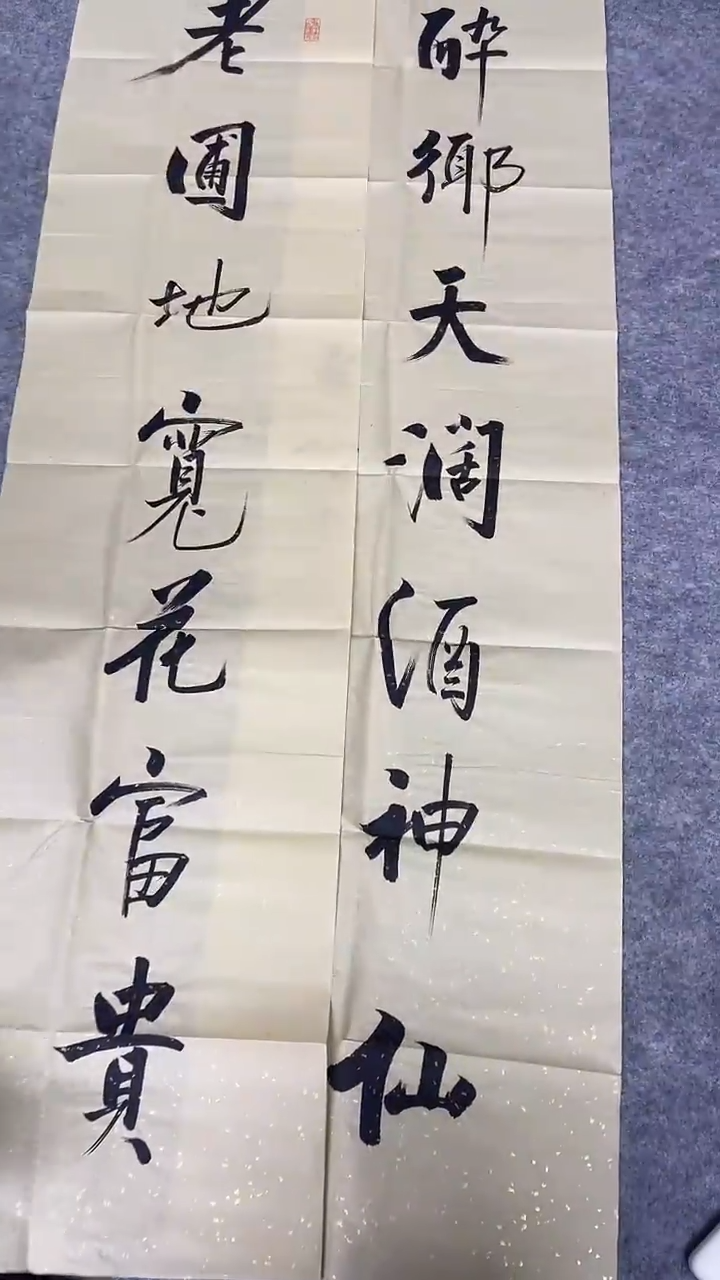 醉鄉天闊酒神仙
老圃地寬花富貴